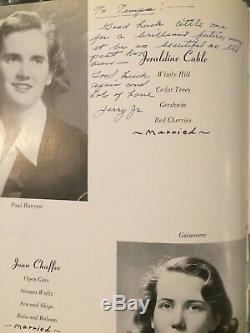 To Tempa:—
Good Luck little one
for a brilliant future, may
it be as beautiful as the
past has
been —
Good Luck
again and
Lots of Love
Jerry Jr.
Geraldine Cable
Windy Hill
Cedar Trees
Gershwin
Red Cherries
~Married~
Paul Bunyan
Guinevere
Joan Chaffee
Open Cars
Strauss Waltz
Sea and Ships
Rain and Balsam
~married~